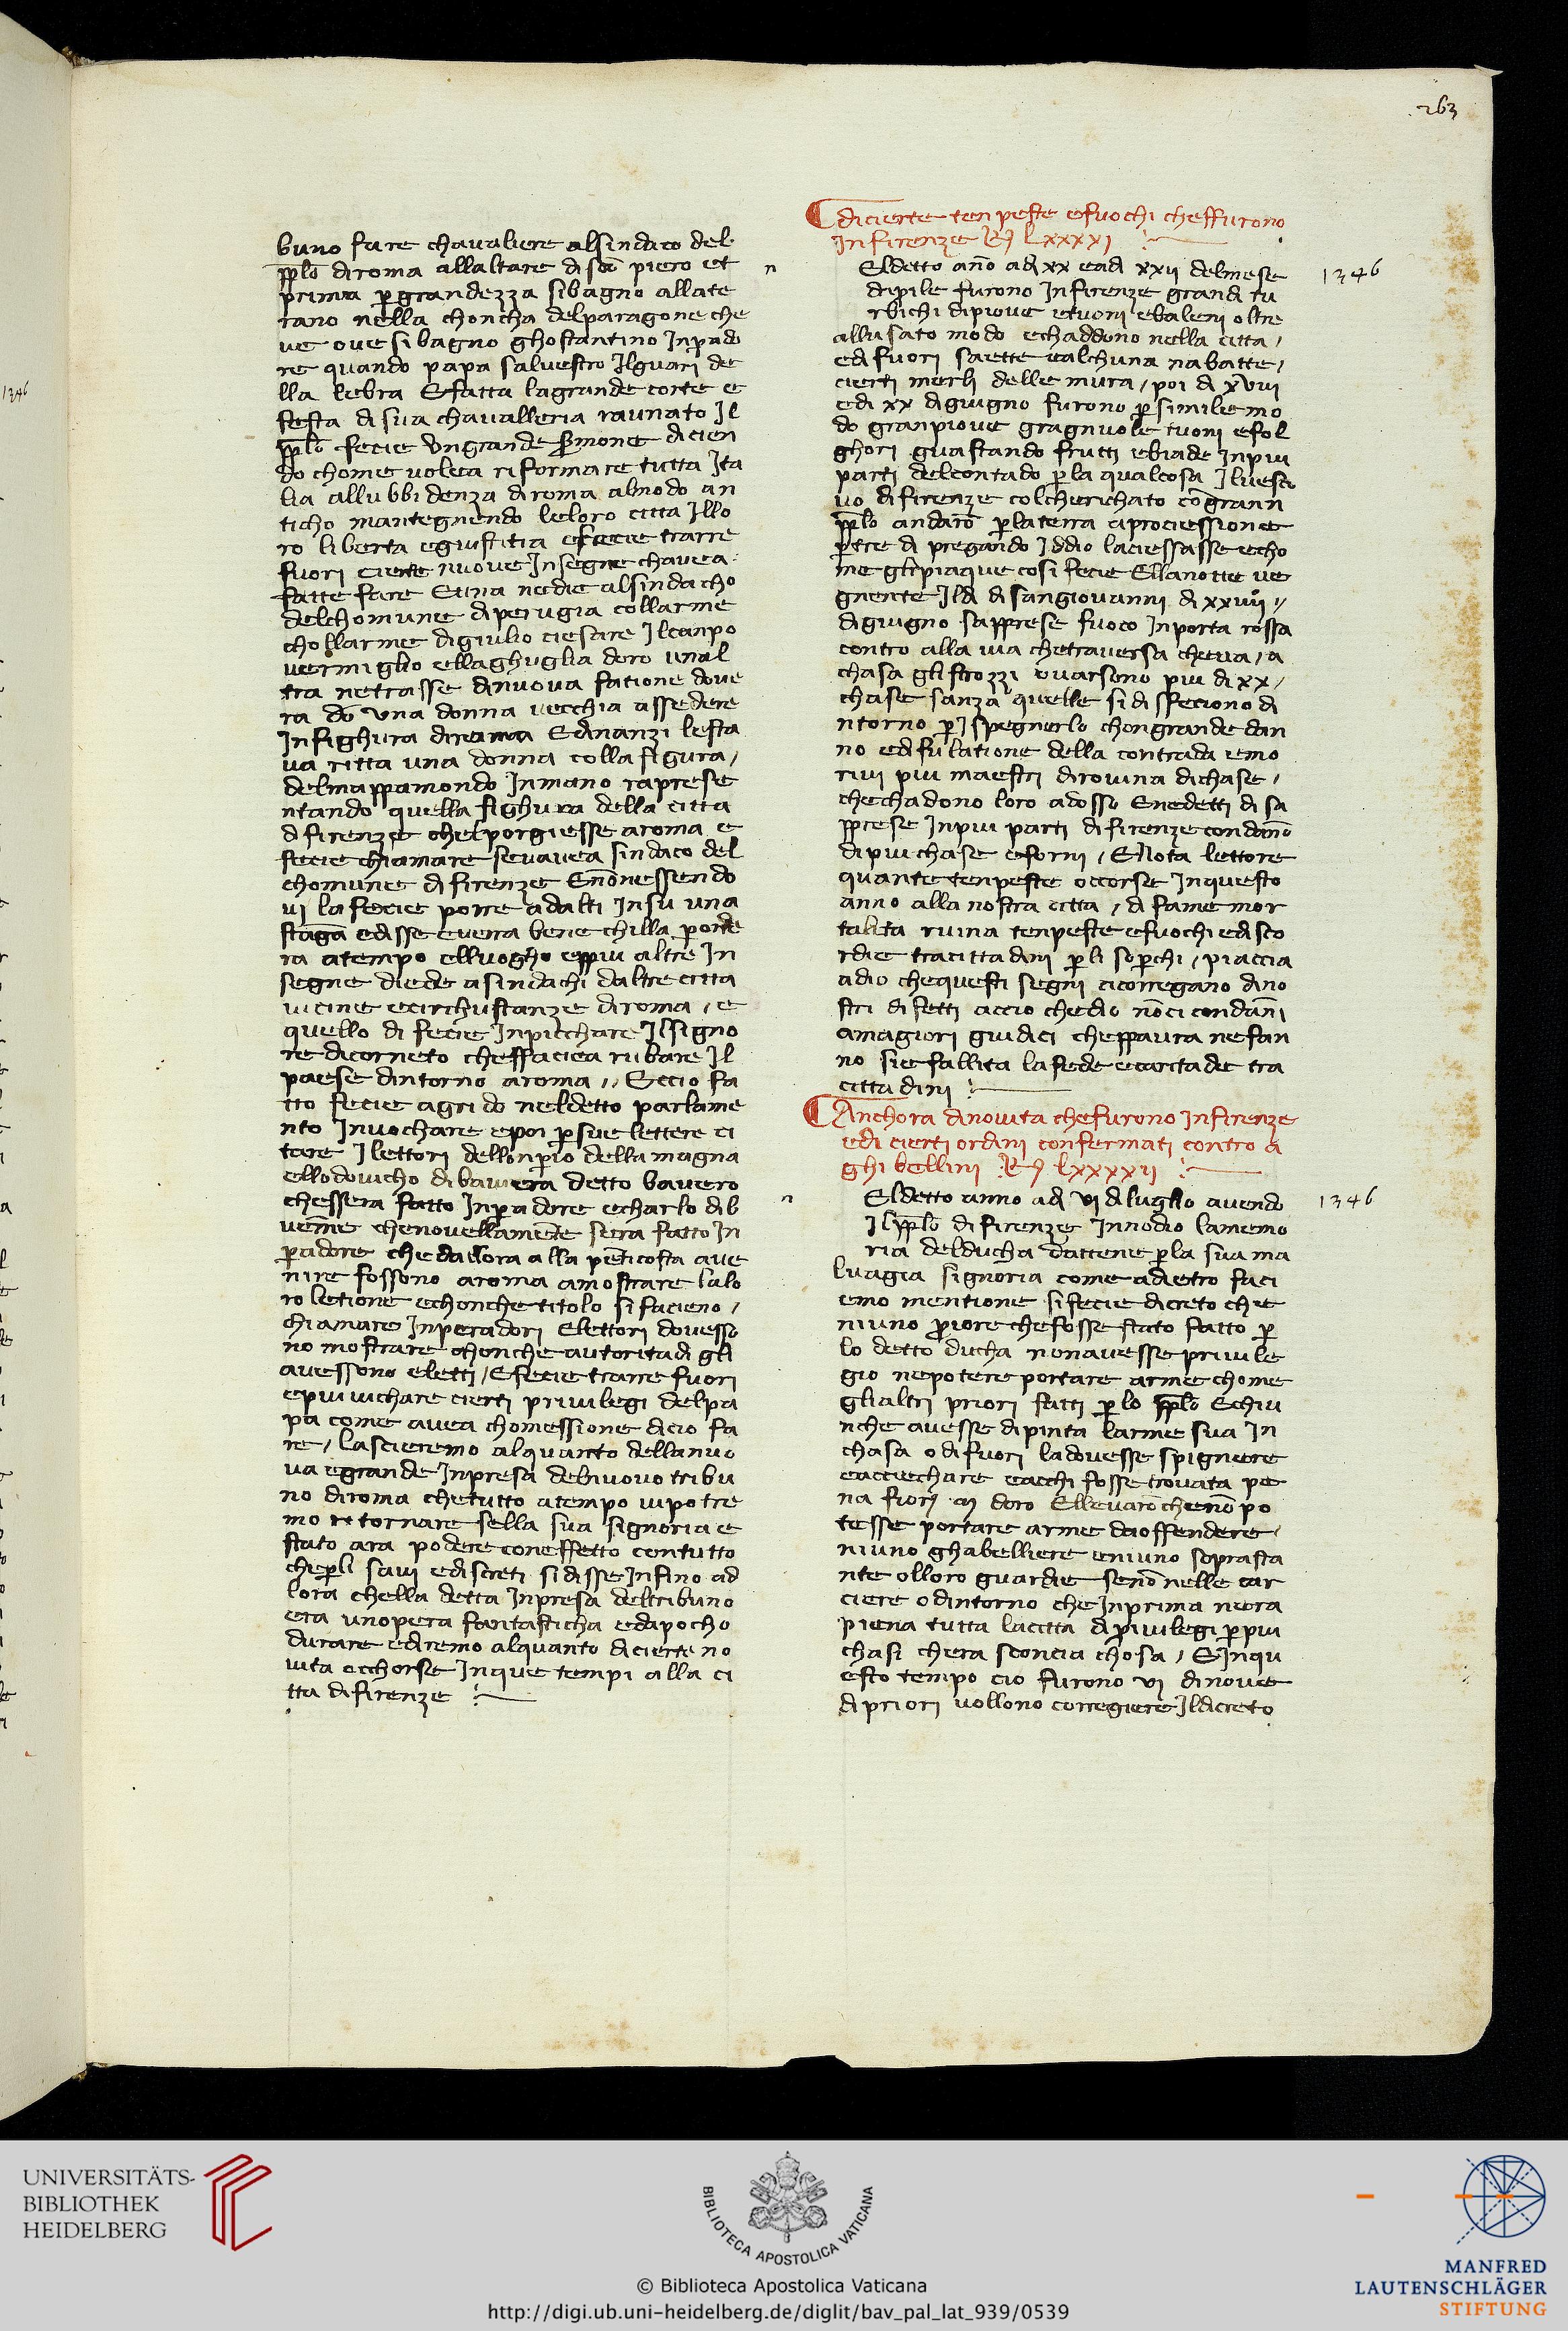 263
buno fare chavaliere alsindaco del
pplō diroma allaltare di sāc piero et
prima p grandezza sibagno allate
rano nella choncha delparagone che
ve ove si bagno ghostantino Inpado
re quando papa salvestro Ilguari de
lla lebra Efatta lagrande corte e
festa di sua chavalleria raunato Il
pplō fecie Un grande Smone dicien
do chome volea riformare tutta Ita
lia allubbidenza diroma almodo an
ticho mantegnendo leloro citta Illo
ro liberta egiustitia efecie trarre
fuori cierte nuove Insegne chavea
fatte fare Euna nedie alsindacho
delchomune di perugia collarme
chollarme digiulio ciesare Ilcanpo
vermiglio ellaghuglia doro unal
tra netrasse dinuova fatione dove
ra dō una donna vecchia assedere
Infighura diroma Edinanzi lesta
va ritta una donna colla figura,
delmappamondo Inmano raprese
ntando quella fighura della citta
di firenze chelporgiesse aroma e
fecie chiamare sevavea sindaco del
chomune di firenze Enōnessendo
vi la fecie porre adalti Insu una
staga edisse everra bene chilla prende
ra atempo elluogho eppiu altre In
segne diede asindachi daltre citta
vicine ecirchustanze diroma, e
quello di fecie Inpicchare Ilsigno
re dicorneto cheffaciea rubare Il
paese dintorno aroma,, Eccio fa
tto fecie agrido neldetto parlame
nto Invochare epoi p sue lettere ci
tare Ilettori dellonpio della magna
ellodovicho dibaviera detto bavero
chessera fatto Inpadore echarlo dib
vēme chenovellamente sera fatto In
padore che dallora alla pēticosta ave
nire fossono aroma amostrare lalo
ro letione echonche titolo si facieno,
chiamare Inperadori Elettori dovesso
no mostrare chonche autoritadi gli
avessono eletti, Efecie trarre fuori
epiuvichare cierti privilegi delpa
pa come avea chomessione dicio fa
re, lascieremo alquanto dellanuo
va egrande Inpresa delnuovo tribu
no diroma chetutto atempo vipotre
mo ritornare sella sua signoria e
stato ara podere coneffetto contutto
chepli savi ediscreti sidisse Infino ad
lora chella detta Inpresa deltribuno
era unopera fantasticha edapocho
durare ediremo alquanto dicierte no
vita occhorse Inque tempi alla ci
tta difirenze
dicierte tenpeste efuochi cheffurono
Infirenze Rꝯ lxxxxi
Eldetto año adi xx eadi xxii delmese
dipile furono Infirenze grandi tu
rbichi dipiove etuoni ebaleni oltre
allusato modo echaddono nella citta,
edi fuori saette ealchuna nabatte,
cierti merli delle mura, poi di xviii
edi xx digiugno furono p simile mo
do granpiove gragnuole tuoni efol
ghori guastando frutti ebiade Inpiu
parti delcontado p la qualcosa Ilvesco
vo difirenze colcherichato cogrann
pplō andarō p laterra aprociessione
p tre di pregando Iddio laciessasse echo
me glipiaque cosi fecie Ellanotte ve
gnente Ildi di sangiovanni di xxiiii,,
digiugno sapprese fuoco Inporta rossa
contro alla via chetraversa cheva, a
chasa glistrozzi ovarsono piu di xx,
chase sanza quelle si disfeciono di
ntorno p Ispegnerlo chongrande dan
no edisulatione della contrada emo
rivi piu maestri dirovina dichase,
chechadono loro adosso Enedetti di sa
pprese Inpiu parti difirenze condāno
dipiu chase eforni, Enota lettore
quante tenpeste occorse Inquesto
anno alla nostra citta, di fame mor
talita ruina tenpeste efuochi edisco
rdie tracittadini p li sopchi, piaccia
adio chequesti segni cicorregano dino
stri difetti accio chedio nōci condāni
amagiori giudici cheppaura nefan
no sie fallita lafede ecaritade tra
cittadini
Anchora dinovita chefurono Infirenze
edi cierti ordini confermati contro a
ghibellini Rꝯ lxxxxii
Eldetto anno adi vi diluglio avendo
Ilpplō difirenze Innodio lamemo
ria delducha dattene p la sua ma
lvagia signoria come adietro faci
emo mentione sifecie dicreto che
niuno priore chefosse stato fatto p
lo detto ducha nonavesse privile
gio nepotere portare arme chome
glialtri priori fatti p lo pplō Echiu
nche avesse dipinta larme sua In
chasa odifuori ladovesse spigniere
eacciechare eacchi fosse trovata pe
na fiori m doro Ellevarō chenō po
tesse portare arme daoffendere,
niuno ghabelliere eniuno soprasta
nte olloro guardie senō nelle car
ciere odintorno che Inprima nera
piena tutta lacitta di privilegi p piu
chasi chera sconcia chosa, Einqu
esto tempo cio furono vi dinove
di priori vollono corregiere Ildicreto
n
n
1346
1346
1346
UNIVERSITÄTS-
BIBLIOTHEK
HEIDELBERG
BIBLIOTECA APOSTOLICA VATICANA
© Biblioteca Apostolica Vaticana
http://digi.ub.uni-heidelberg.de/diglit/bav_pal_lat_939/0539
MANFRED
LAUTENSCHLÄGER
STIFTUNG